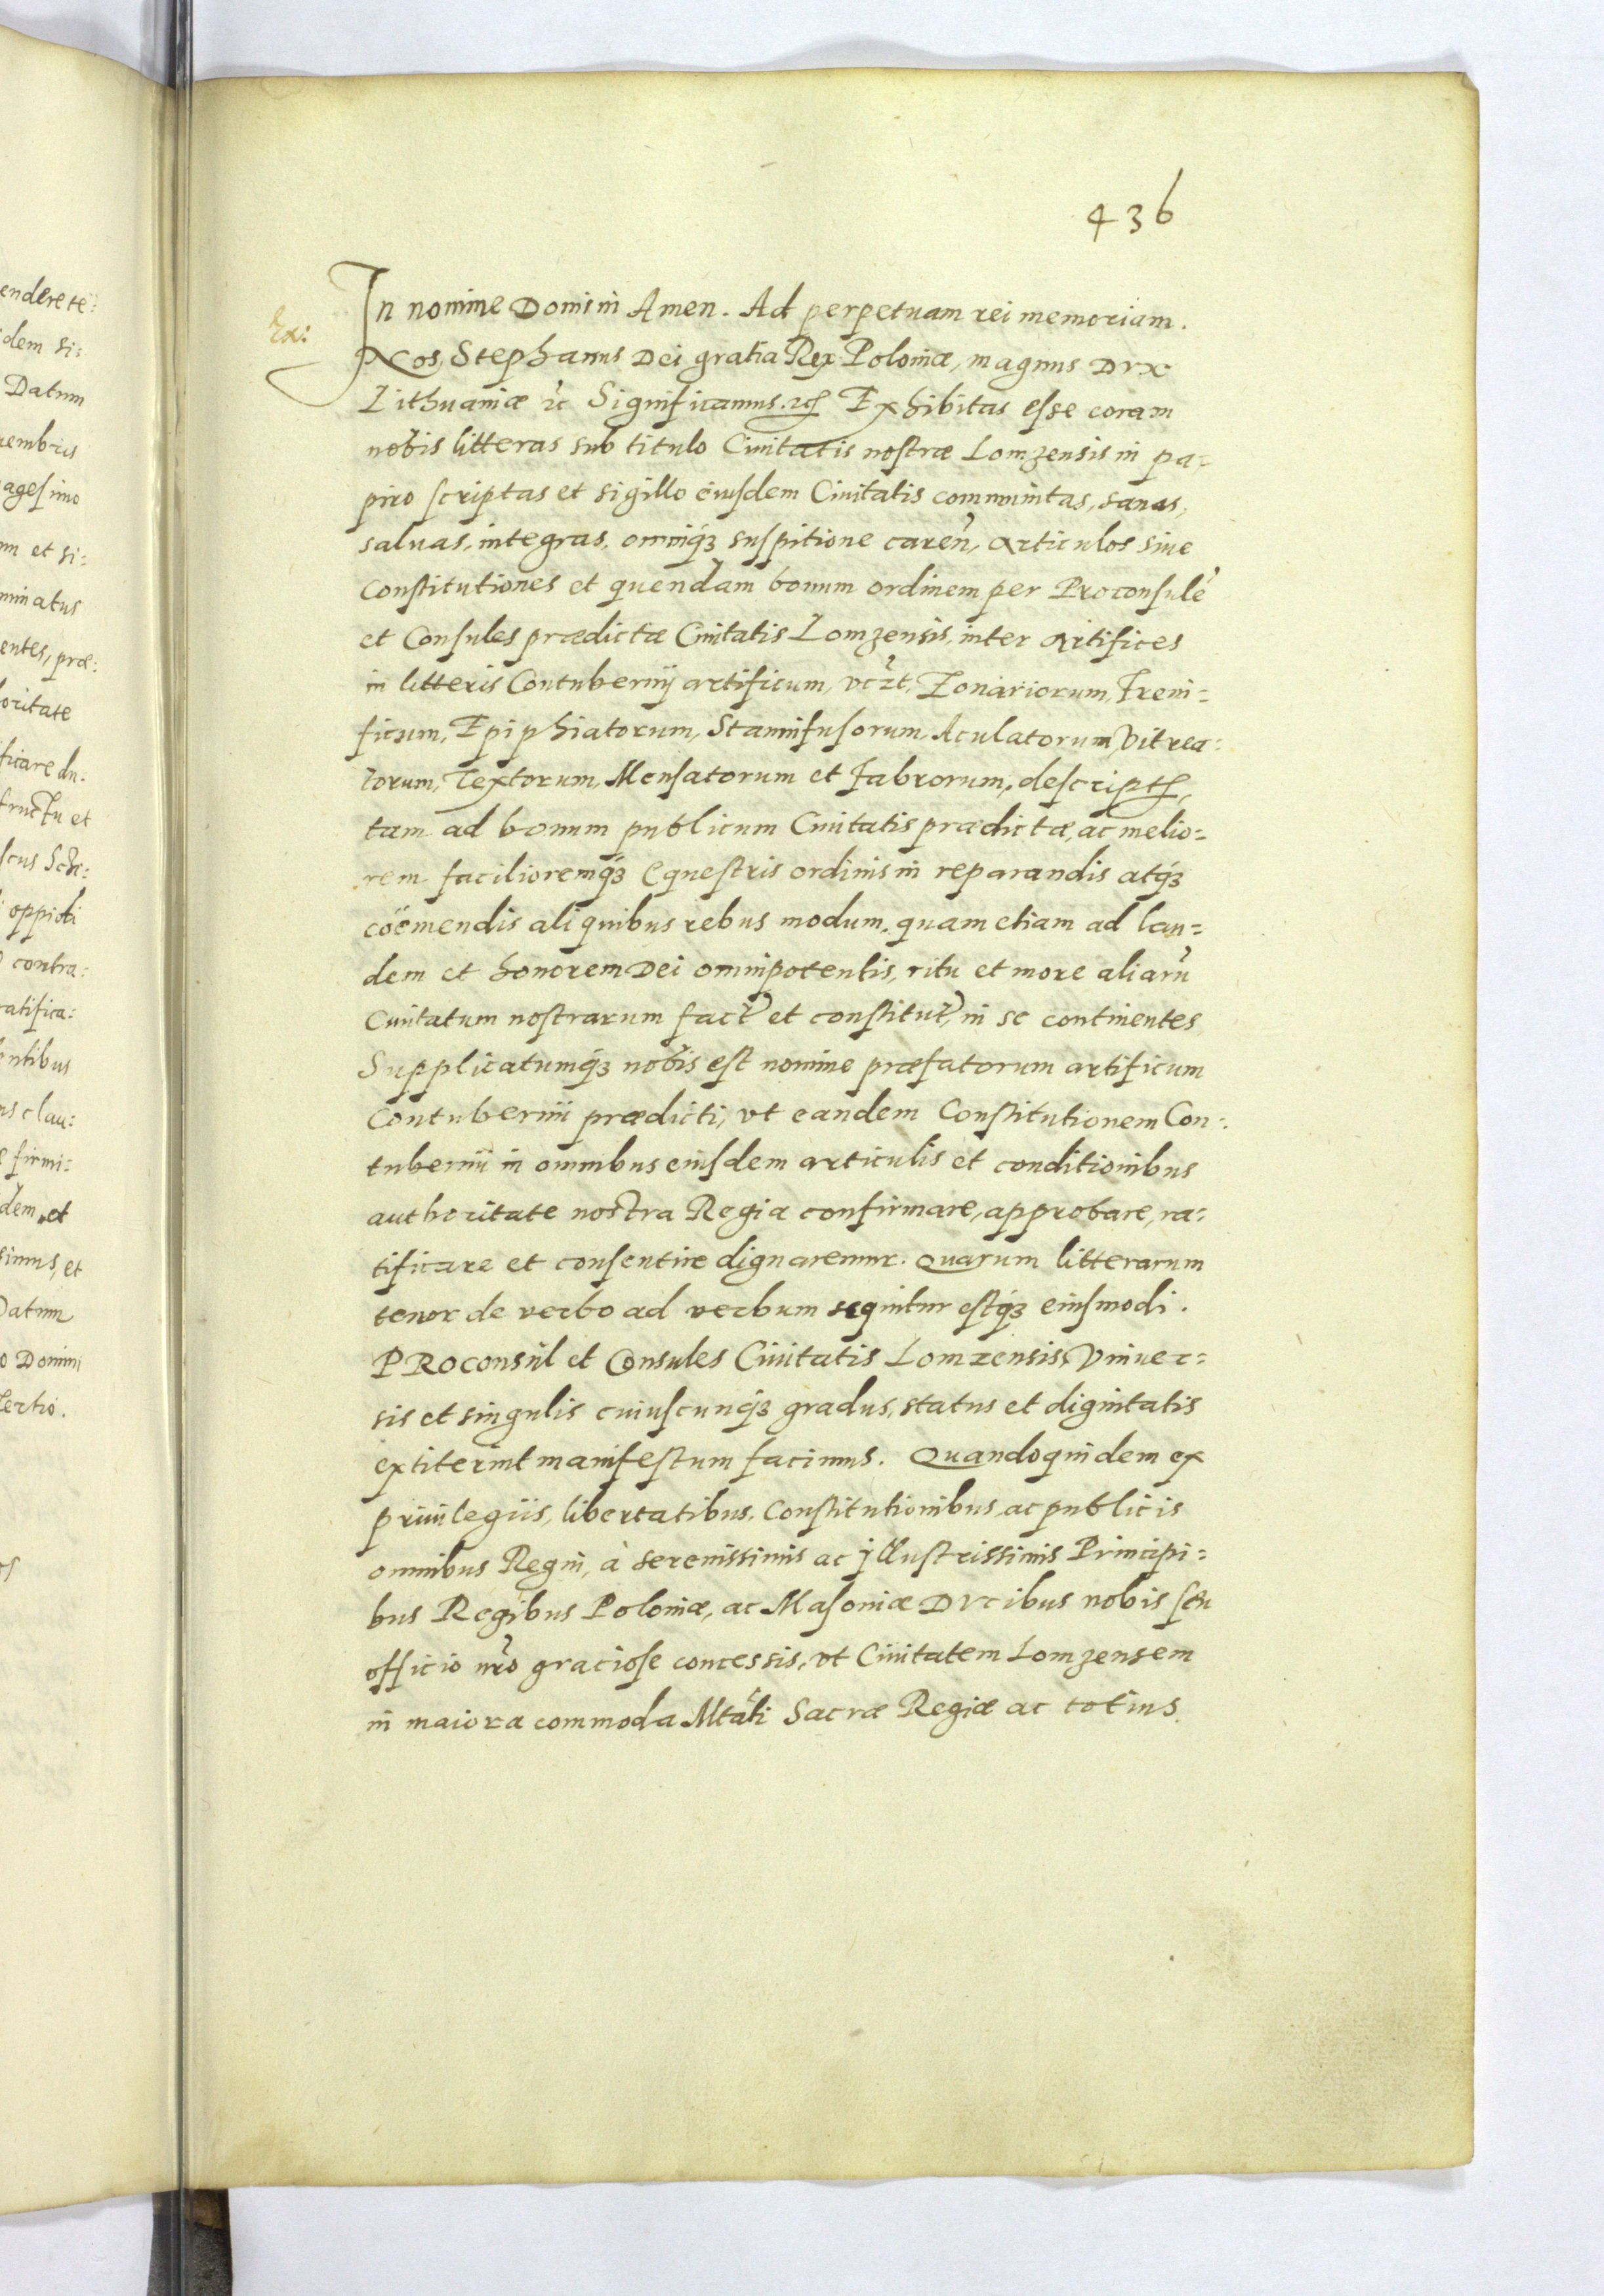 436
Ex:
In nomine Domini Amen. Ad perpetuam rei memoriam.
Nos, Stephanus Dei gratia Rex Poloniæ, magnus Dvx
Lithuaniæ etc Significamus. etc Exhibitas esse coram
nobis litteras sub titulo Ciuitatis nostræ Lomzensis in pa=
piro scriptas et sigillo eiusdem Ciuitatis communitas, sanas,
saluas, integras, omniq₃ suspitione careñ, Articulos siue
Constitutiones et quendam bonum ordinem per Proconsulẽ
et Consules prædictæ Ciuitatis Lomzensis, inter Artifices
in litteris Contubernij artificum, vczt, Zonariorum, Freni=
ficum, Epiphiatorum, Stannifusorum, Aculatorum, Vitrea=
torum, Textorum, Mensatorum et Fabrorum, descript,
tam ad bonum publicum Ciuitatis prædictæ, ac melio=
rem facilioremq₃ Equestris ordinis in reparandis atq₃
coëmendis aliquibus rebus modum, quam etiam ad lau=
dem et honorem Dei omnipotentis, ritu et more aliarũ
Ciuitatum nostrarum fact et constitut, in se continentes
Supplicatumq₃ nobis est nomine præfatorum artificum
Contubernii prædicti, vt eandem Constitutionem Con=
tubernii in omnibus eiusdem articulis et conditionibus
authoritate nostra Regia confirmare, approbare, ra=
tificare et consentire dignaremur. Quarum litterarum
tenor de verbo ad verbum sequitur estq₃ eiusmodi.
PRoconsul et Consules Ciuitatis Lomzensis, Vniuer=
sis et singulis cuiuscunq₃ gradus, status et dignitatis
extiterint manifestum facimus. Quandoquidem ex
priuilegiis, libertatibus, Constitutionibus, ac publicis
omnibus Regni, à serenissimis ac jllustrissimis Principi=
bus Regibus Poloniæ, ac Masoniæ Dvcibus nobis seu
officio nro graciose concessis, vt Ciuitatem Lomzensem
in maiora commoda Mtati Sacræ Regiæ ac totius